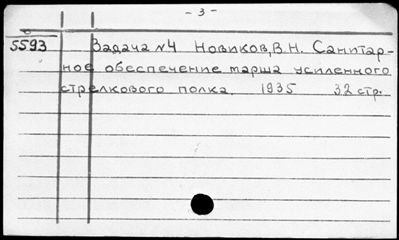 - 3 -
5593 Задача №4 Новиков, В.Н. Санитар-
ное обеспечение марша усиленного
стрелкового полка. 1935 32 стр.